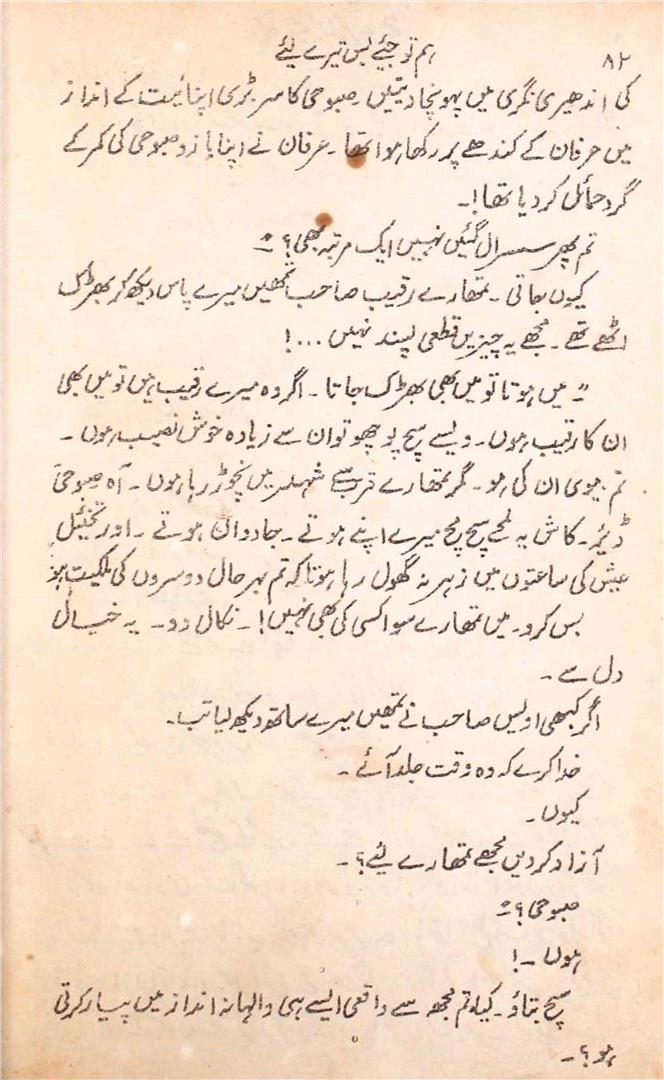 ۸۲
ہم تو جئے بس تیرے لئے
کی اندھیری نگری میں پہونچا دیتیں۔ صبوحی کا سر بڑی اپنائیت کے انداز
میں عرفان کے کندھے پر رکھا ہوا تھا۔ عرفان نے اپنا بازو صبوحی کی کمر کے
گرد حمائل کر دیا تھا!۔
تم پھر سسرال گئیں نہیں ایک مرتبہ بھی؟"۔
کیوں جاتی۔ تمھارے رقیب صاحب تمھیں میرے پاس دیکھ کر بھڑک
اٹھے تھے۔ مجھے یہ چیزیں قطعی پسند نہیں ...!
"۔ میں ہوتا تو میں بھی بھڑک جاتا۔ اگر وہ میرے رقیب ہیں تو میں بھی
ان کا رقیب ہوں۔ ویسے سچ پوچھو تو ان سے زیادہ خوش نصیب ہوں۔
تم بیوی ان کی ہو۔ گر تمھارے قرب سے شہد میں نچوڑ رہا ہوں۔ آہ صبوحی
ڈیئر۔ کاش یہ لمحے سچ مچ میرے اپنے ہوتے۔ جاوداں ہوتے۔ اور تخئیل
عیش کی ساعتوں میں زہر نہ گھول رہا ہوتا کہ تم بہرحال دوسروں کی ملکیت ہو
بس کرو۔ میں تمھارے سوا کسی کی بھی نہیں!۔ نکال دو۔ یہ خیال
دل سے۔
اگر کبھی اویس صاحب نے تمھیں میرے ساتھ دیکھ لیا تب۔
خدا کرے کہ وہ وقت جلد آئے۔
کیوں۔
آزاد کر دیں مجھے تمھارے لئے؟۔
صبوحی؟"۔
ہوں۔!
سچ بتاؤ۔ کیا تم مجھ سے واقعی ایسے ہی والہانہ انداز میں پیار کرتی
ہو؟۔